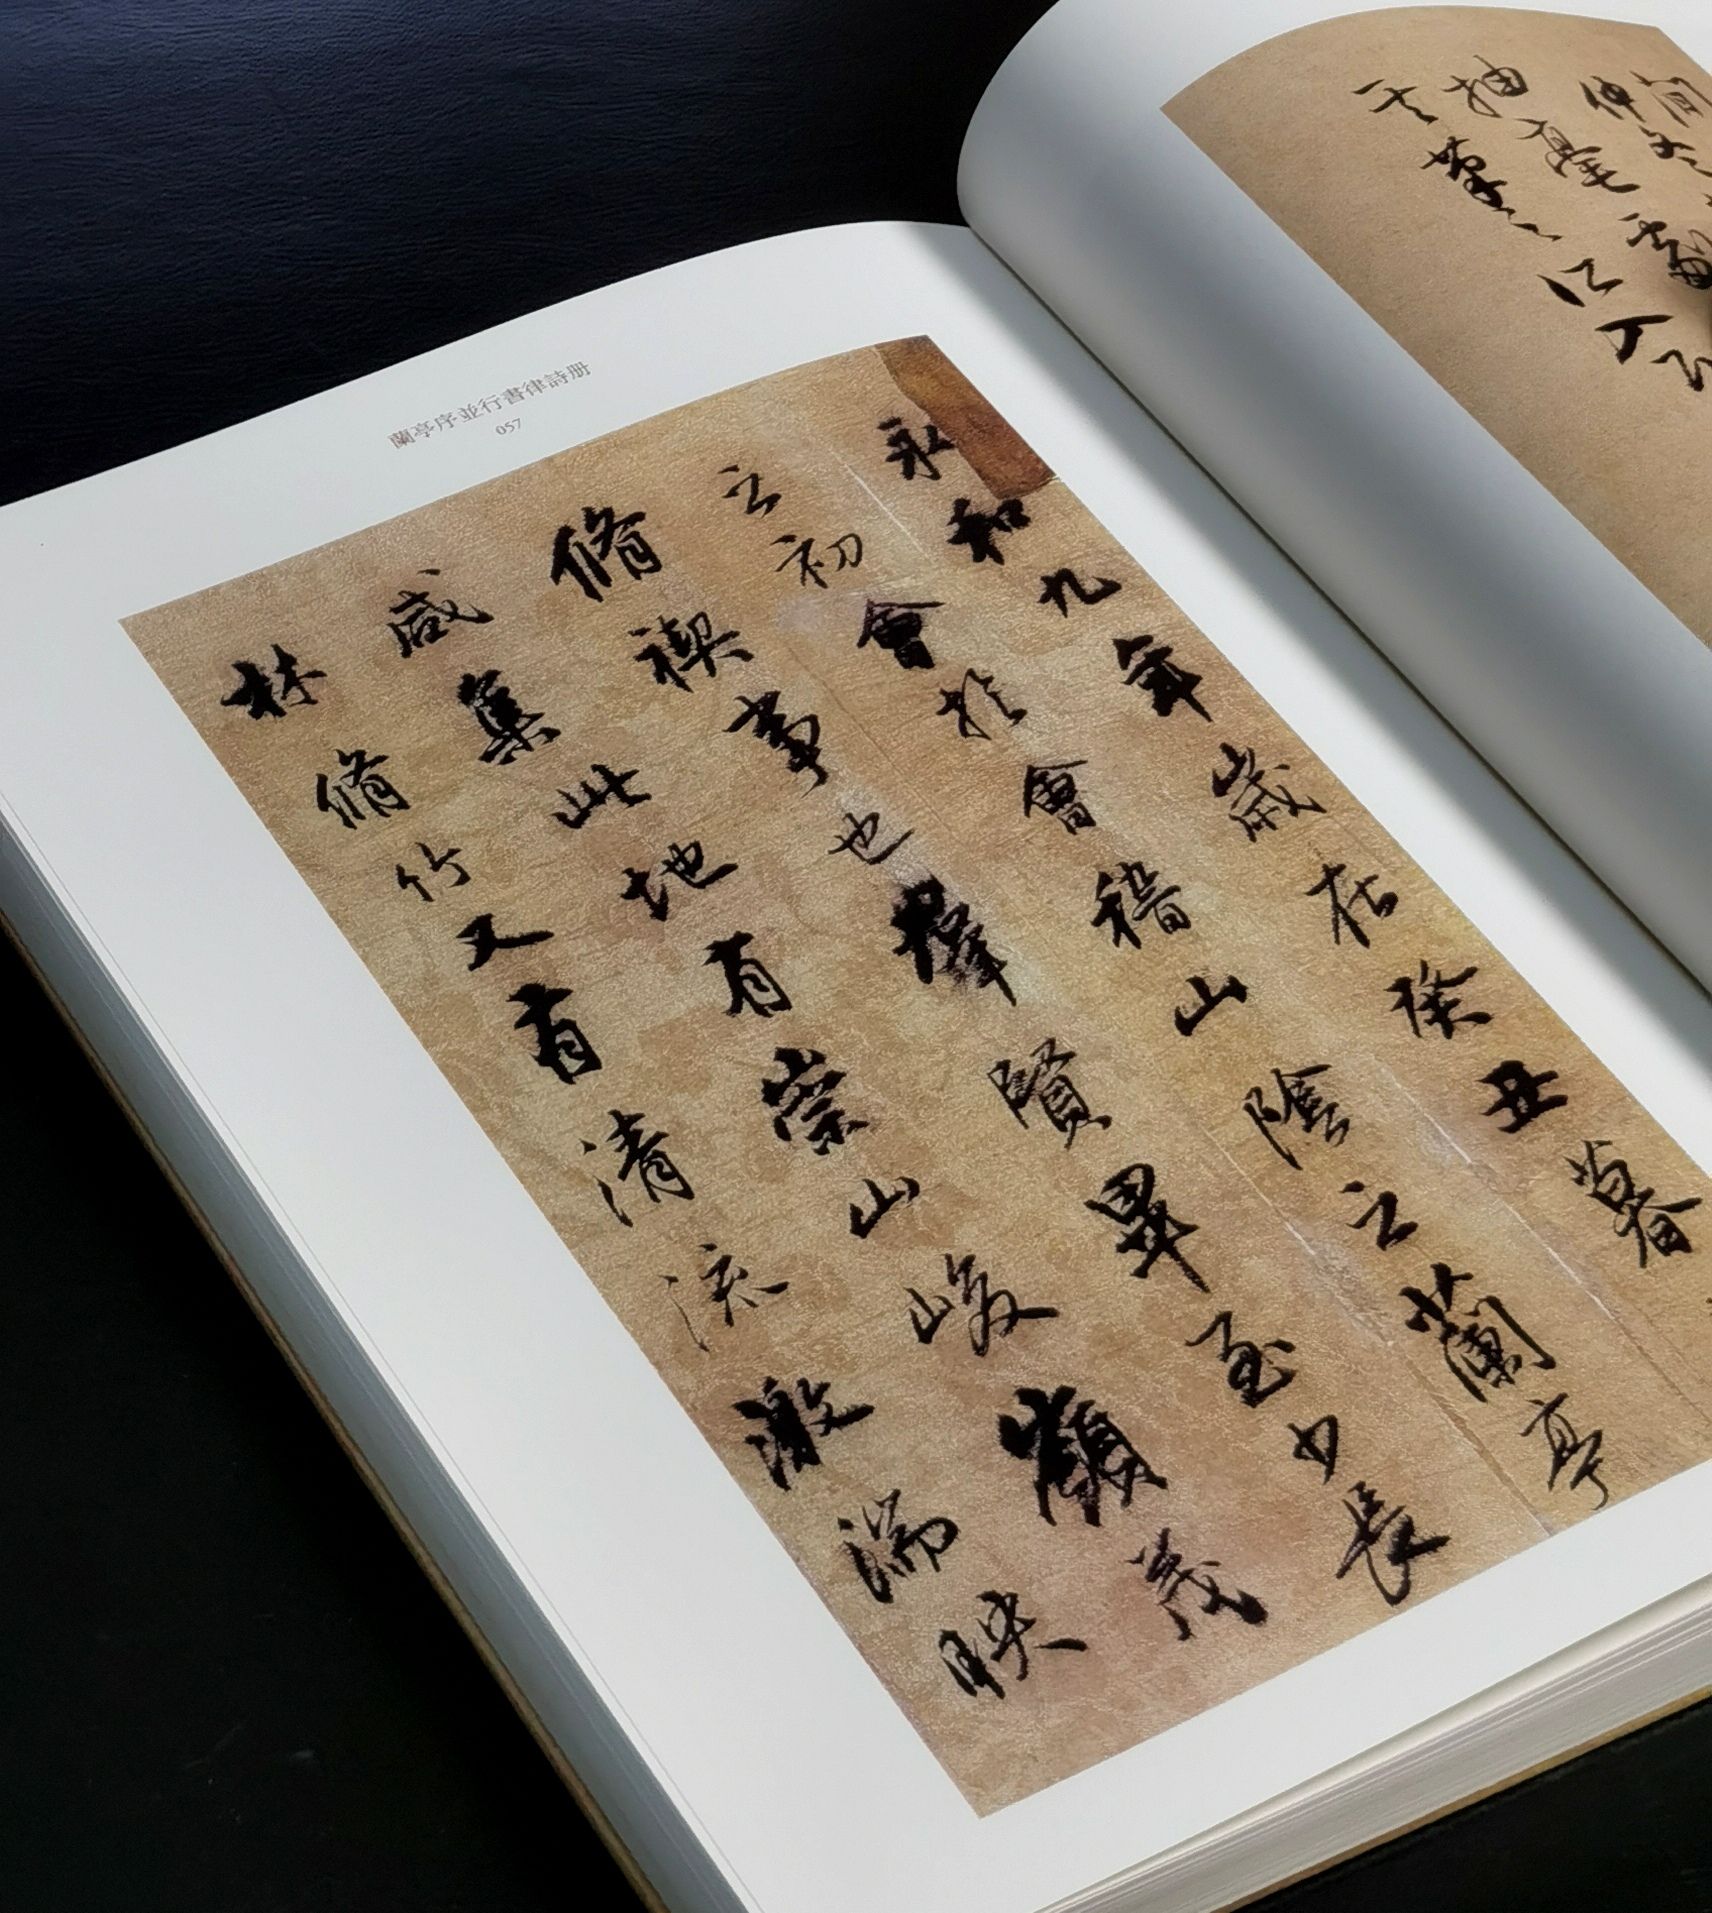 蘭亭序並行書律詩册
057
永和九年歲在癸丑暮
之初會於會稽山陰之蘭亭
脩禊事也羣賢畢至少長
咸集此地有崇山峻嶺茂
林脩竹又有清流激湍映